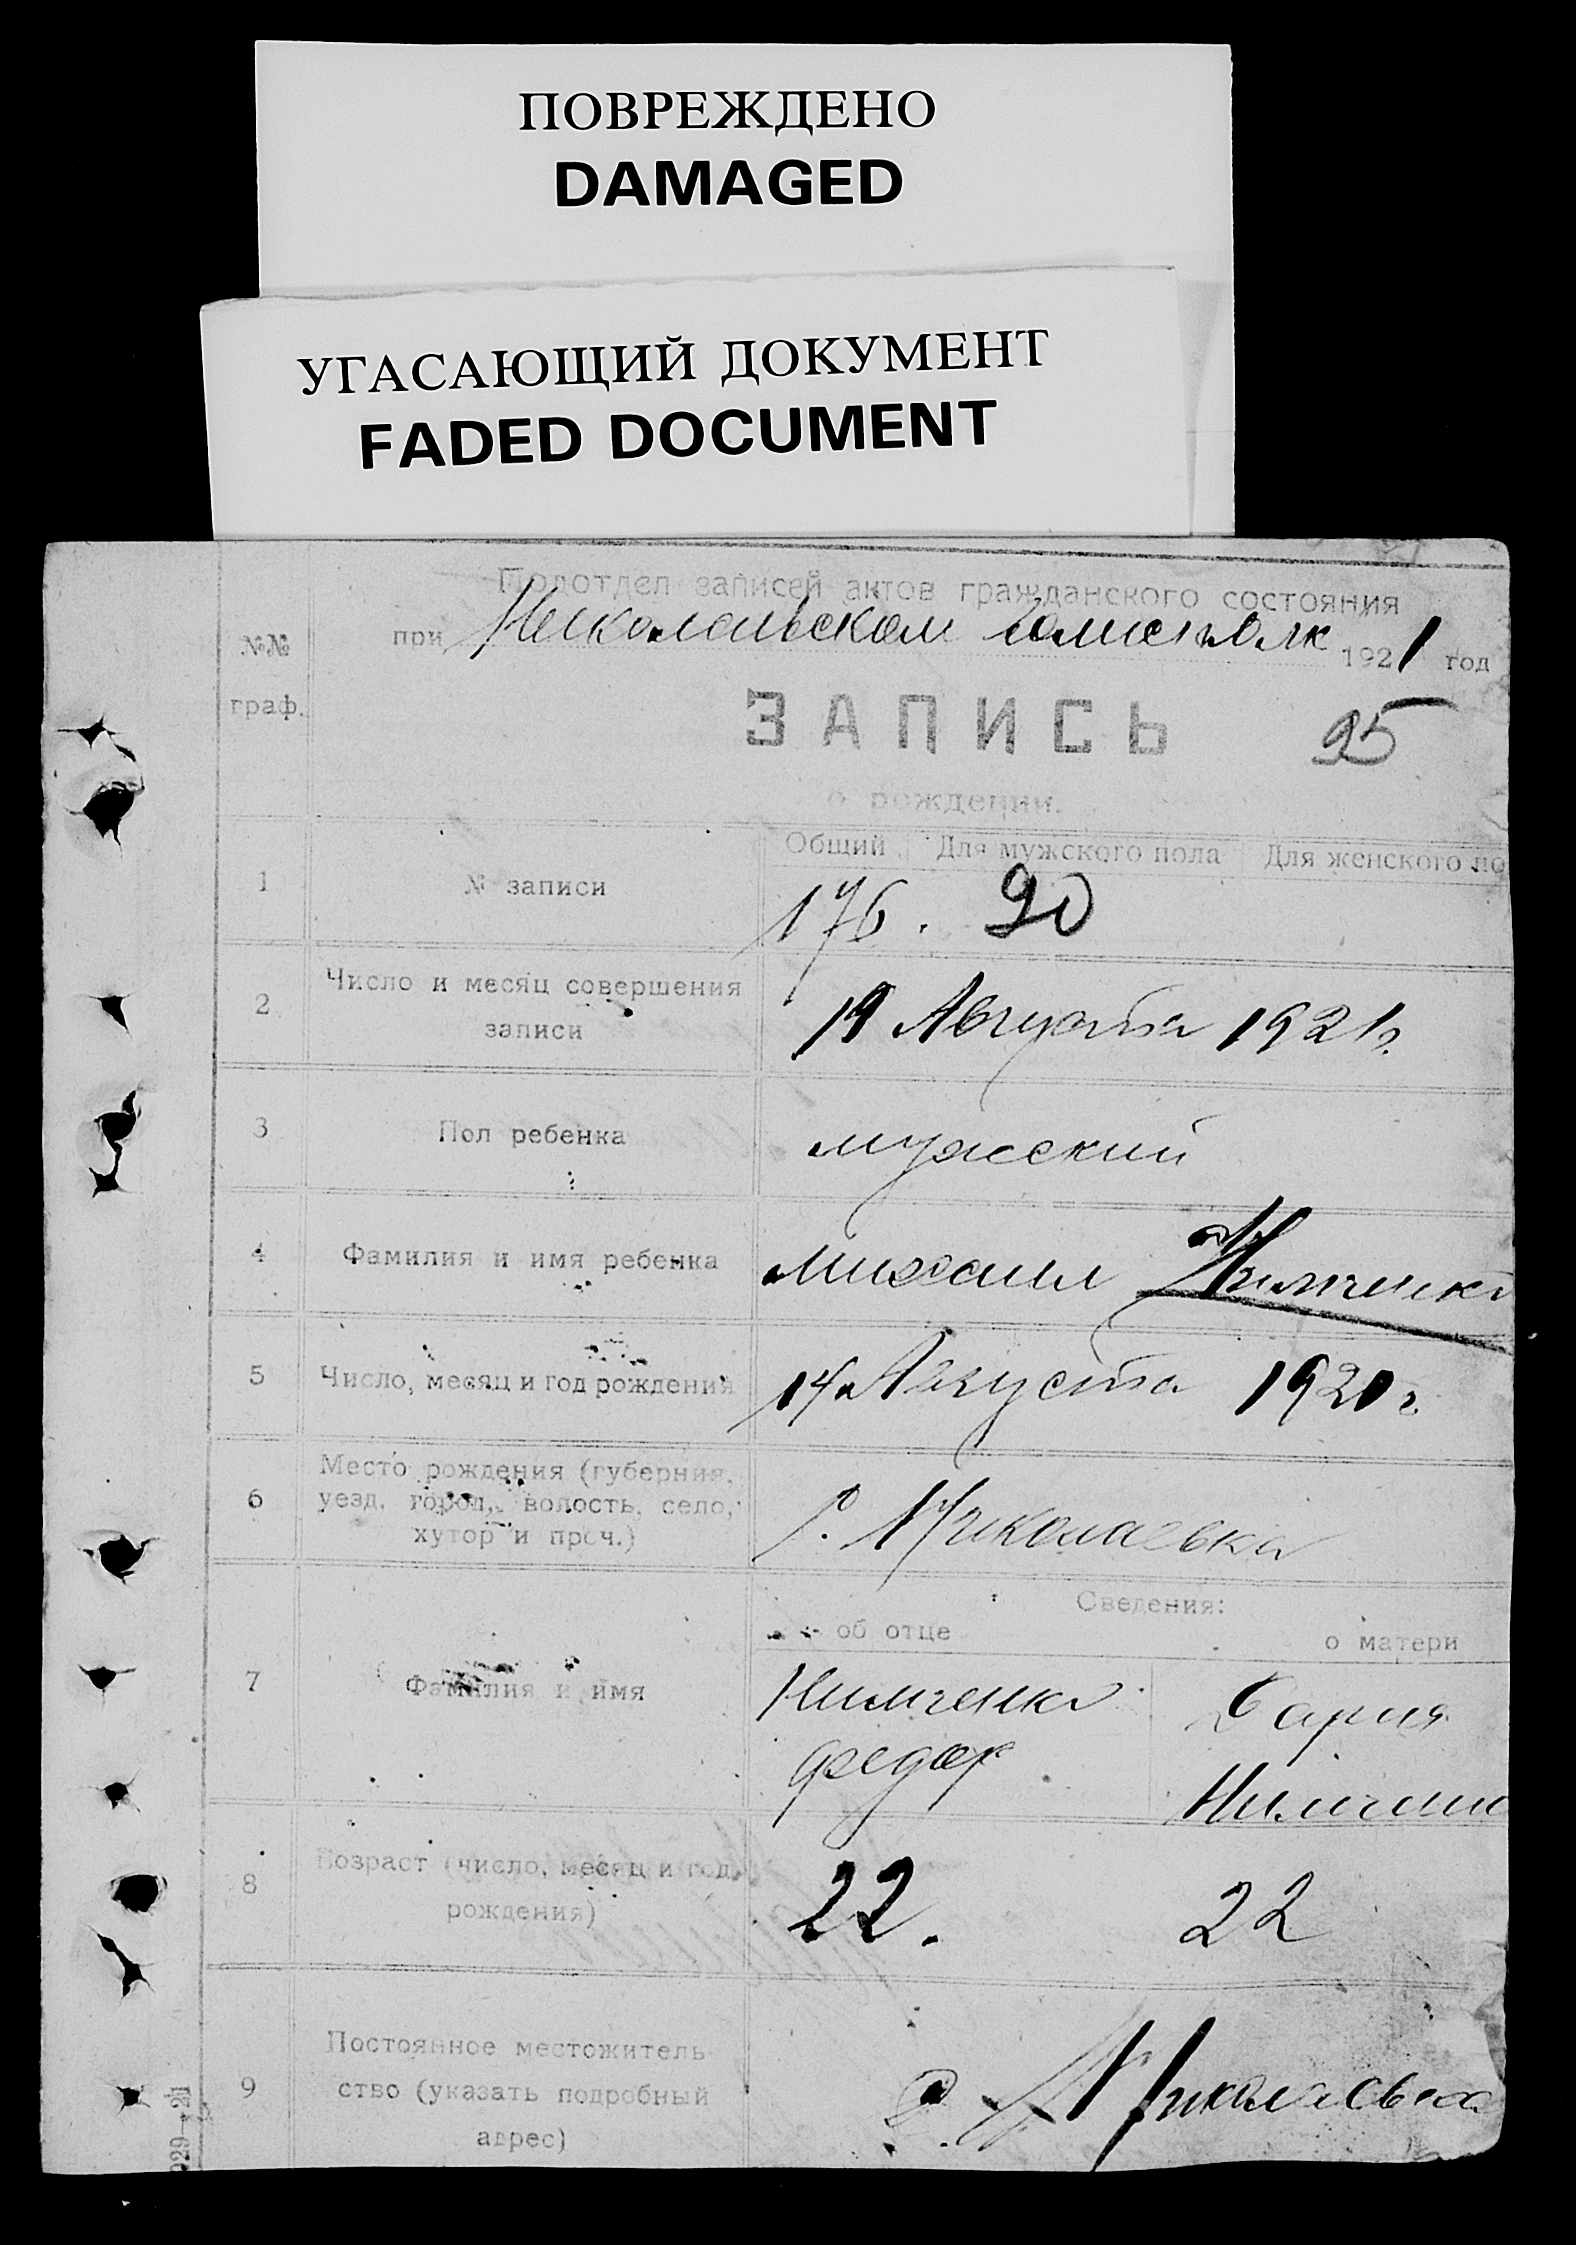 ПОВРЕЖДЕНО
DAMAGED
УГАСАЮЩИЙ ДОКУМЕНТ
FADED DOCUMENT
Подотдел записей актов гражданского состояния
№№ граф.
при Николаевском 1921 год
ЗАПИСЬ 95
о рождении.
Общий Для мужского пола Для женского по
1 № записи 176. 90
2 Число и месяц совершения
записи
19 Августа 1921 г.
3 Пол ребенка мужский
4 Фамилия и имя ребенка Михаил Нимченко
5 Число, месяц и год рождения 14 Августа 1921 г.
6 Место рождения (губерния,
уезд, город, волость, село,
хутор и проч.)
С. Николаевка
Сведения:
об отце о матери
7 Фамилия и имя
Нимченко Дария
Федор Нимченк
8 Возраст (число, месяц и год
рождения)
22. 22
9 Постоянное местожитель
ство (указать подробный
адрес)
С. Николаевка
929—21